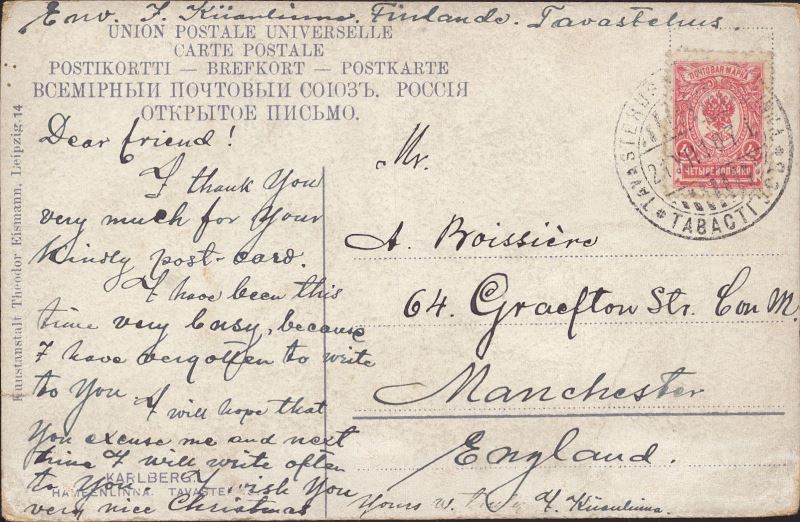 Env. J. Küsulinna. Finlande. Tavastehus.
UNION POSTALE UNIVERSELLE
CARTE POSTALE
POSTIKORTTI — BREFKORT — POSTKARTE
ВСЕМІРНЫЙ ПОЧТОВЫЙ СОЮЗЪ. РОССІЯ
ОТКРЫТОЕ ПИСЬМО.
Kunstanstalt Theodor Eismann, Leipzig. 14
Dear friend!
I thank You
very much for Your
kindly post-card.
I have been this
time very busy, because
I have vergotten to write
to You.
I will hope that
You excuse me and next
time I will write often
to You. I wish You
very nice Christmas
KARLBERG.
HÄMEENLINNA. TAVASTEHUS
Yours
Mr.
A. Boissière
64. Graefton Str. Con M.
Manchester
England.
ПОЧТОВАЯ МАРКА
4 4
ЧЕТЫРЕ КОПѢЙКИ
TAVASTEHUS
ТАВАСТГУСЪ